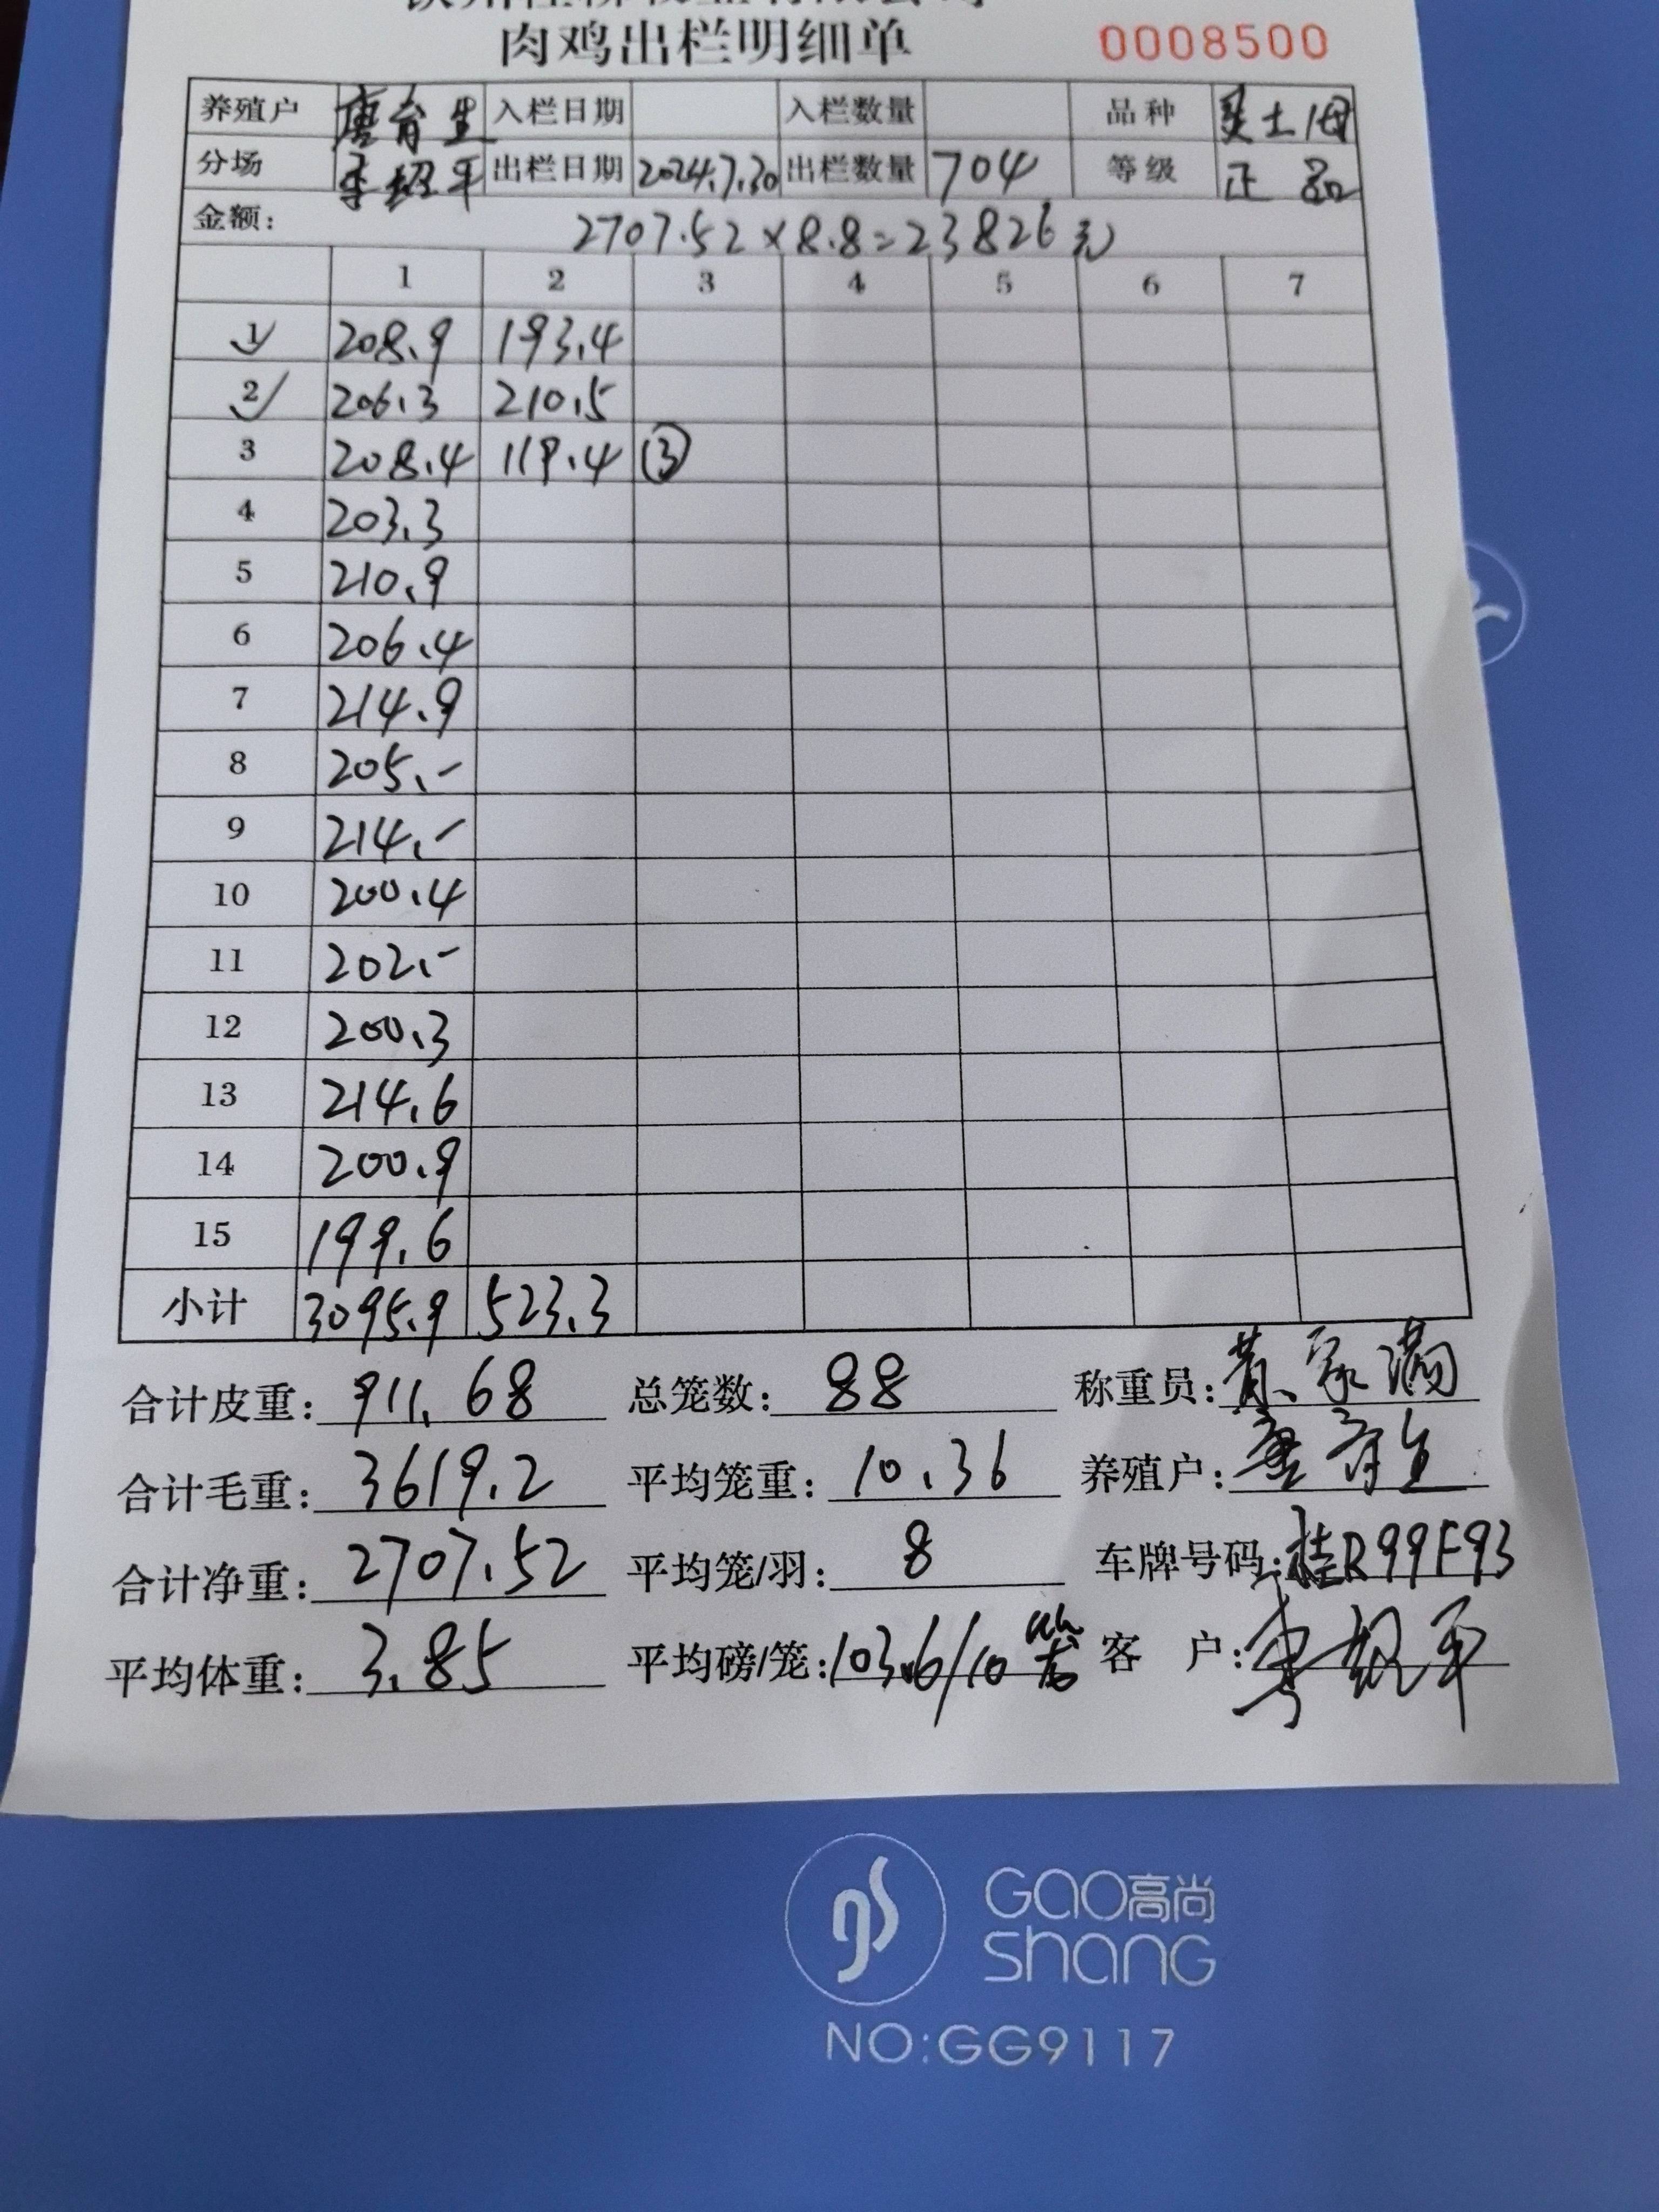 肉鸡出栏明细单 0008500
养殖户 唐育生 入栏日期 入栏数量 品种 土1母
分场 李绍平 出栏日期 2024.7.30 出栏数量 704 等级 正品
金额: 2707.52×8.8=23826元
1 2 3 4 5 6 7
1 208.9 193.4
2 206.3 210.5
3 208.4 119.4 ③
4 203.3
5 210.9
6 206.4
7 214.9
8 205.-
9 214.-
10 200.4
11 202.-
12 200.3
13 214.6
14 200.9
15 199.6
小计 3095.9 523.3
合计皮重: 911.68 总笼数: 88 称重员: 黄家满
合计毛重: 3619.2 平均笼重: 10.36 养殖户: 唐育生
合计净重: 2707.52 平均笼/羽: 8 车牌号码: 桂R99F93
平均体重: 3.85 平均磅/笼: 103.6/10 客户: 李绍平
GAO高尚
shang
NO:GG9117